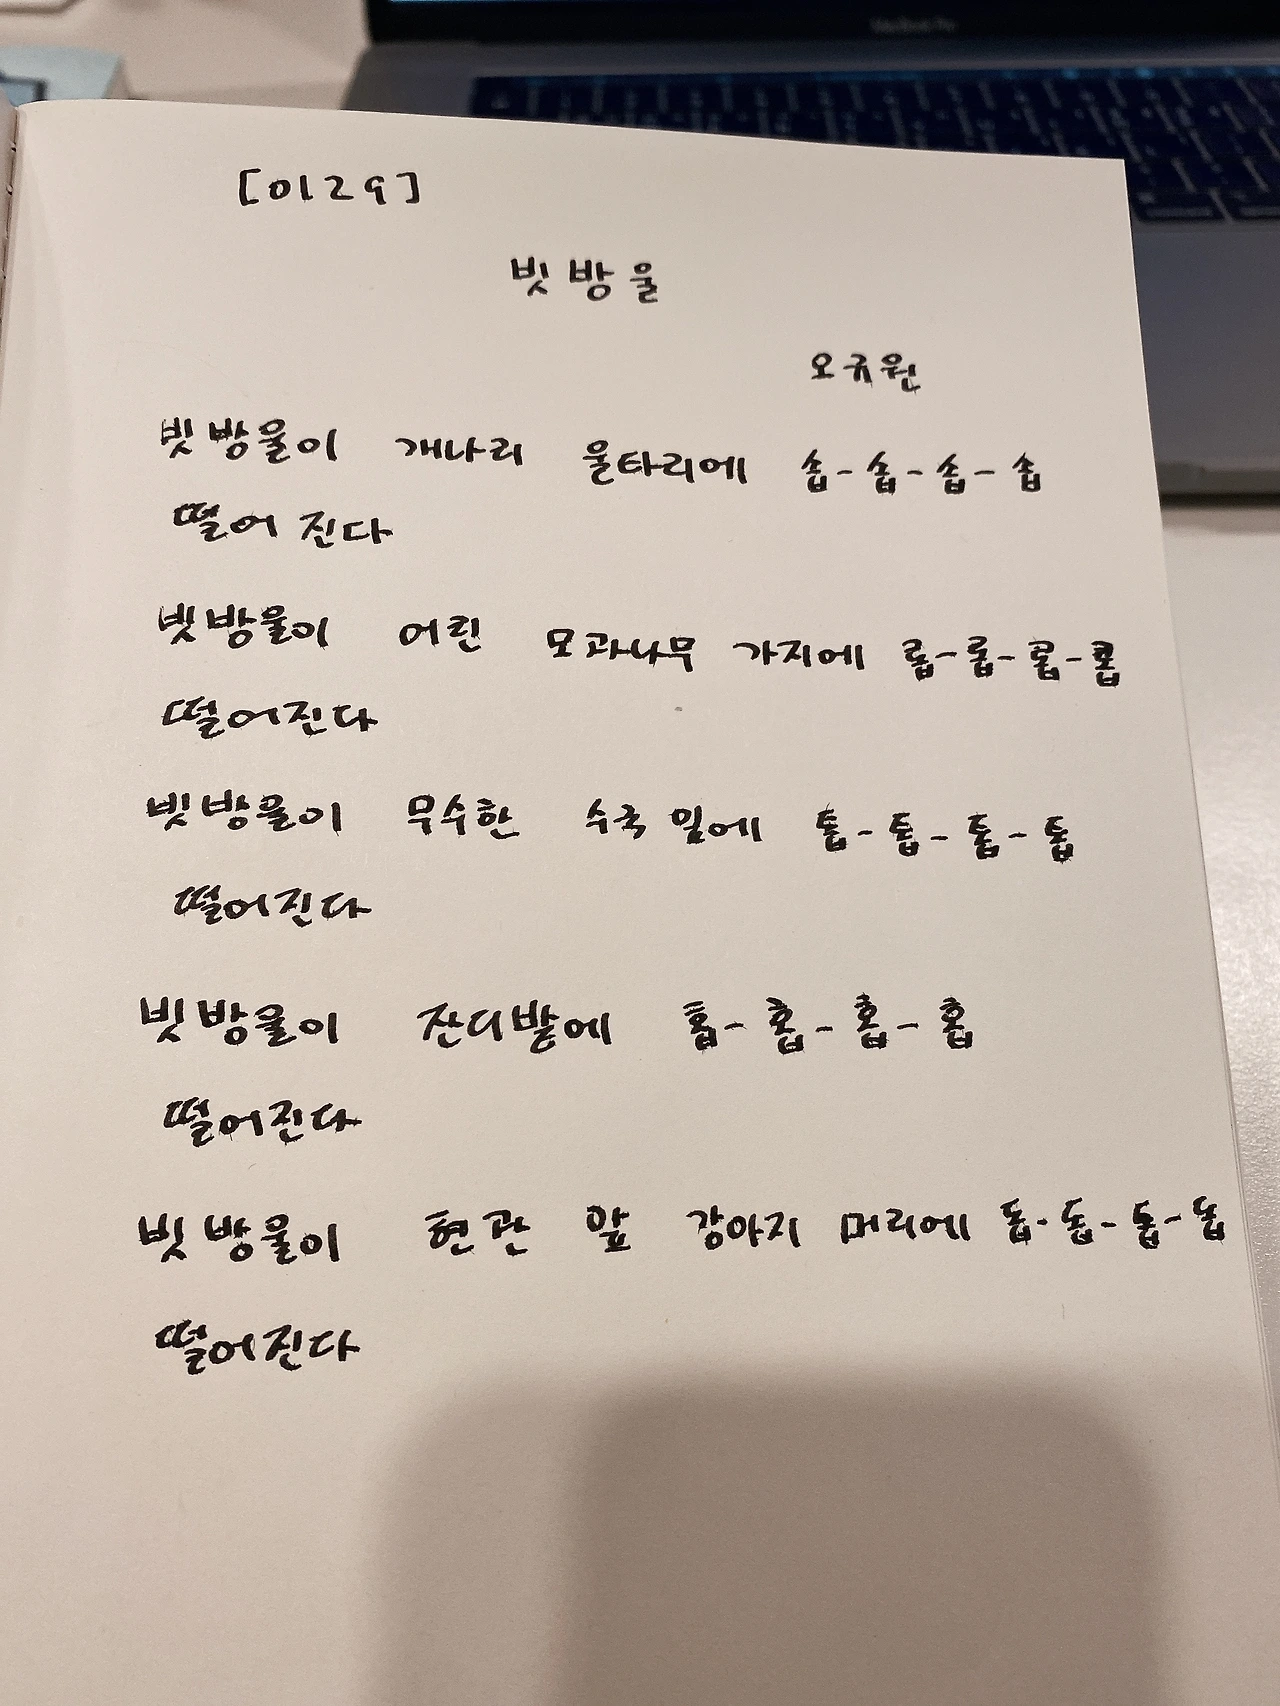 MacBook Pro
[0129]
빗방울
오규원
빗방울이 개나리 울타리에 솝-솝-솝-솝
떨어 진다
빗방울이 어린 모과나무 가지에 롭-롭-롭-롭
떨어진다
빗방울이 무수한 수국 잎에 톱-톱-톱-톱
떨어진다
빗방울이 잔디밭에 홉-홉-홉-홉
떨어진다
빗방울이 현관 앞 강아지 머리에 돕-돕-돕-돕
떨어진다